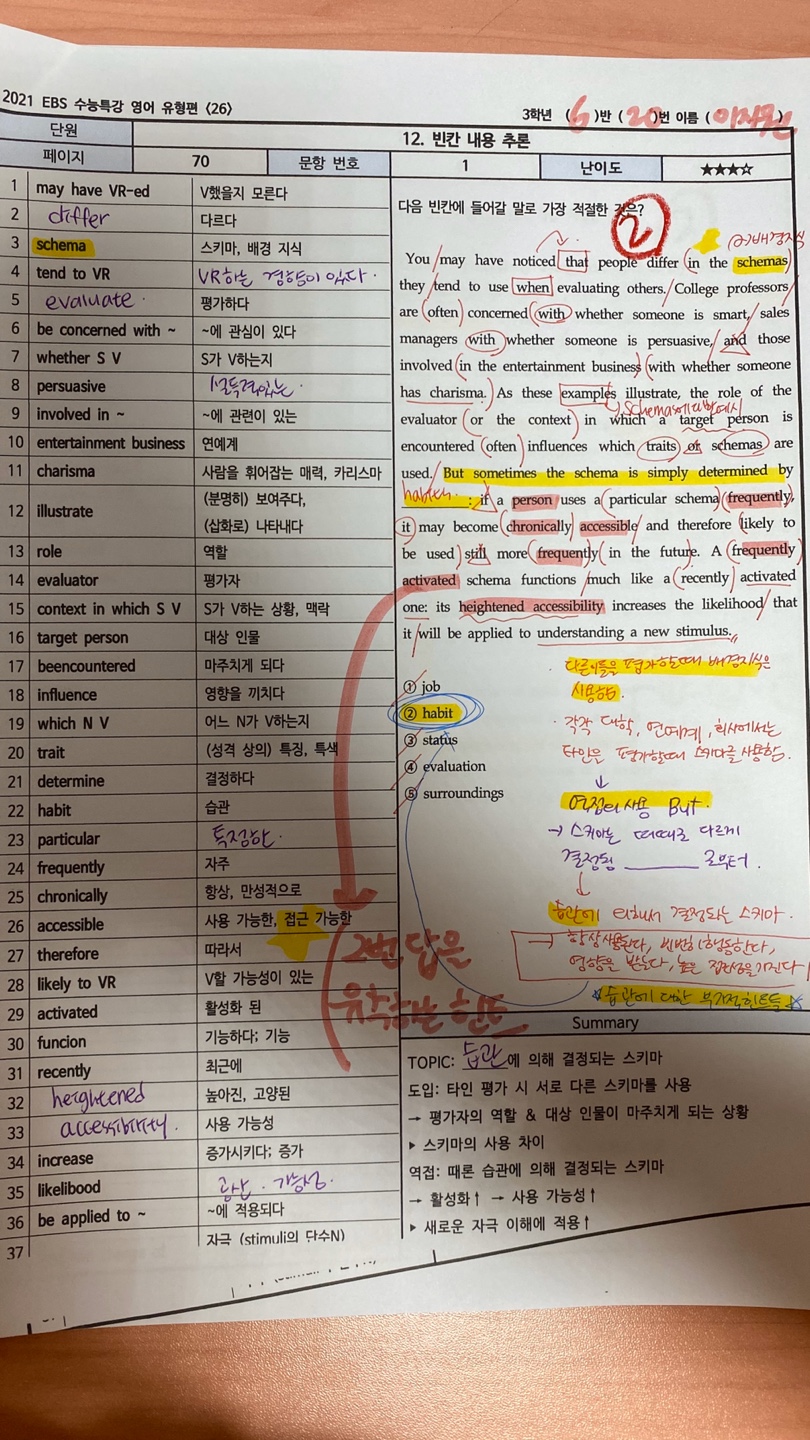 2021 EBS 수능특강 영어 유형편 <26>
3학년 ( 6 )반 ( 20 )번 이름 ( )
단원 12. 빈칸 내용 추론
페이지 70 문항 번호 1 난이도 ★★★☆
1 may have VR-ed V했을지 모른다
2 differ 다르다
3 schema 스키마, 배경 지식
4 tend to VR VR하는 경향이 있다.
5 evaluate. 평가하다
6 be concerned with ~ ~에 관심이 있다
7 whether S V S가 V하는지
8 persuasive 설득력있는.
9 involved in ~ ~에 관련이 있는
10 entertainment business 연예계
11 charisma 사람을 휘어잡는 매력, 카리스마
12 illustrate (분명히) 보여주다,
(삽화로) 나타내다
13 role 역할
14 evaluator 평가자
15 context in which S V S가 V하는 상황, 맥락
16 target person 대상 인물
17 beencountered 마주치게 되다
18 influence 영향을 끼치다
19 which N V 어느 N가 V하는지
20 trait (성격 상의) 특징, 특색
21 determine 결정하다
22 habit 습관
23 particular 특정한.
24 frequently 자주
25 chronically 항상, 만성적으로
26 accessible 사용 가능한, 접근 가능한
27 therefore 따라서
28 likely to VR V할 가능성이 있는
29 activated 활성화 된
30 funcion 기능하다; 기능
31 recently 최근에
32 heightened 높아진, 고양된
33 accessibility. 사용 가능성
34 increase 증가시키다; 증가
35 likelibood 공산. 가능성.
36 be applied to ~ ~에 적용되다
37 자극 (stimuli의 단수N)
2번 답은
유추하는 힌트
다음 빈칸에 들어갈 말로 가장 적절한 것은?
2
배경지식
You may have noticed that people differ in the schemas
they tend to use when evaluating others. College professors
are often concerned with whether someone is smart, sales
managers with whether someone is persuasive, and those
involved in the entertainment business with whether someone
has charisma. As these examples illustrate, the role of the
schemas에 대한 예시
evaluator or the context in which a target person is
encountered often influences which traits or schemas are
used. But sometimes the schema is simply determined by
: if a person uses a particular schema frequently,
it may become chronically accessible and therefore likely to
be used still more frequently in the future. A frequently
activated schema functions much like a recently activated
one: its heightened accessibility increases the likelihood that
it will be applied to understanding a new stimulus.
① job
② habit
③ status
④ evaluation
⑤ surroundings
다른이들을 평가할때 배경지식은
사용함.
· 각각 대학, 연예계, 회사에서는
타인은 평가할때 스키마를 사용함.
↓
역접의 사용 But.
→ 스키마는 때때로 다르게
결정됨 ______ 로부터.
↓
습관에 의해서 결정되는 스키마.
→ 항상사용된다, 빈번히 행동한다,
영향을 받는다, 높은 접근성을 가진다
습관에 대한 부가적힌트들
Summary
TOPIC: 습관에 의해 결정되는 스키마
도입: 타인 평가 시 서로 다른 스키마를 사용
→ 평가자의 역할 & 대상 인물이 마주치게 되는 상황
▶ 스키마의 사용 차이
역접: 때론 습관에 의해 결정되는 스키마
→ 활성화↑ → 사용 가능성↑
▶ 새로운 자극 이해에 적용↑